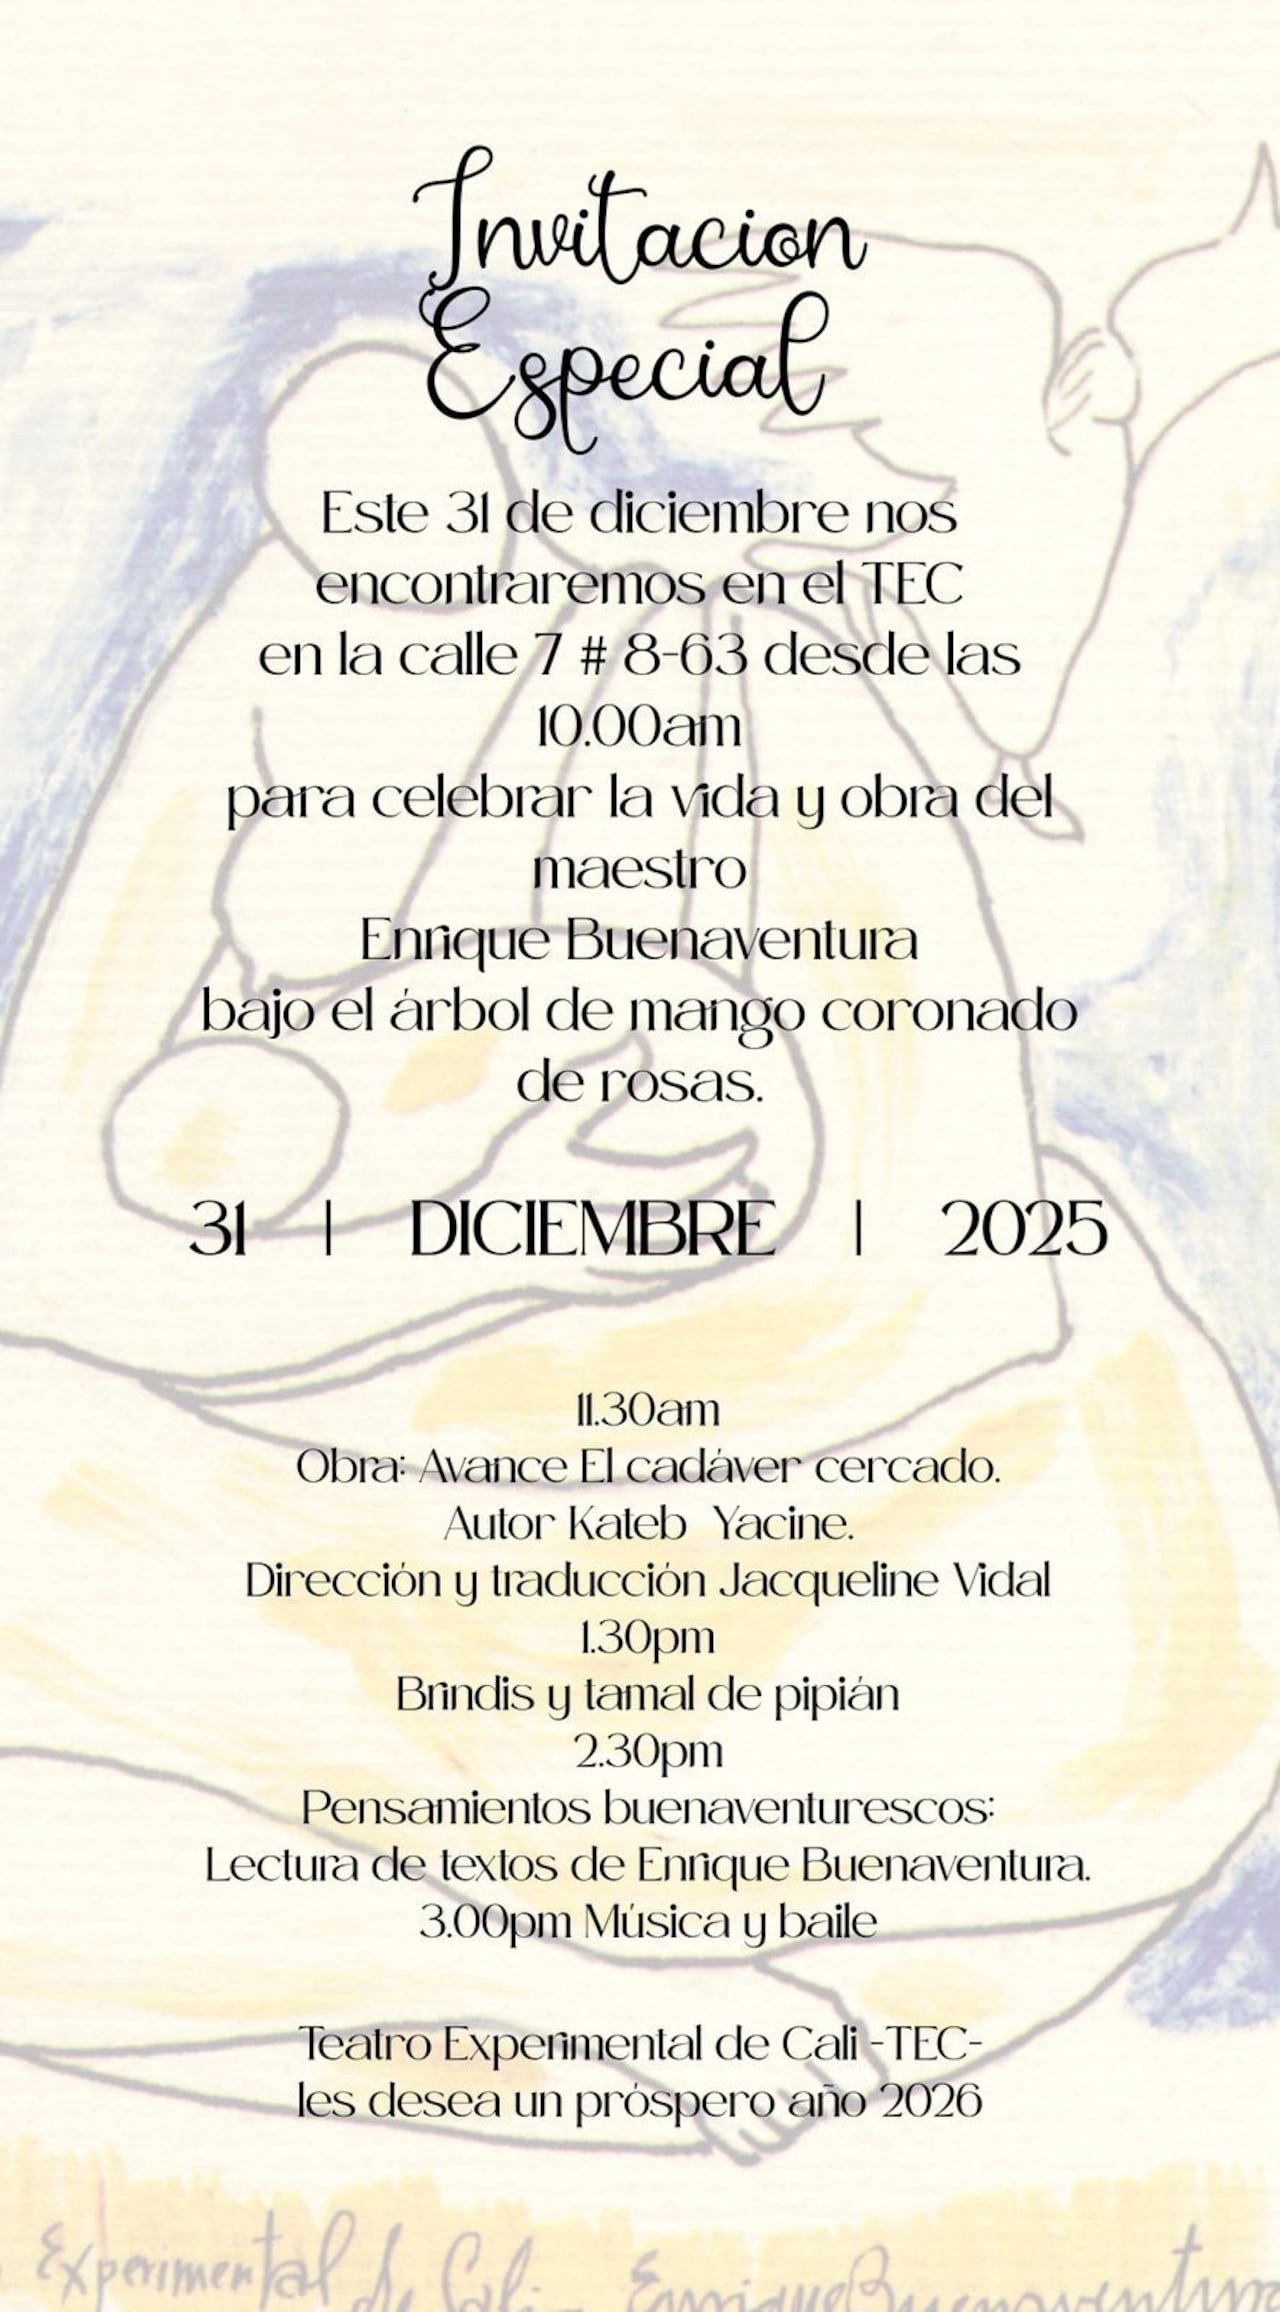 Invitacion
Especial
Este 31 de diciembre nos
encontraremos en el TEC
en la calle 7 # 8-63 desde las
10.00am
para celebrar la vida y obra del
maestro
Enrique Buenaventura
bajo el árbol de mango coronado
de rosas.
31 | DICIEMBRE | 2025
11.30am
Obra: Avance El cadáver cercado.
Autor Kateb  Yacine.
Dirección y traducción Jacqueline Vidal
1.30pm
Brindis y tamal de pipián
2.30pm
Pensamientos buenaventurescos:
Lectura de textos de Enrique Buenaventura.
3.00pm Música y baile
Teatro Experimental de Cali -TEC-
les desea un próspero año 2026
Experimental de Cali - Enrique Buenaventura